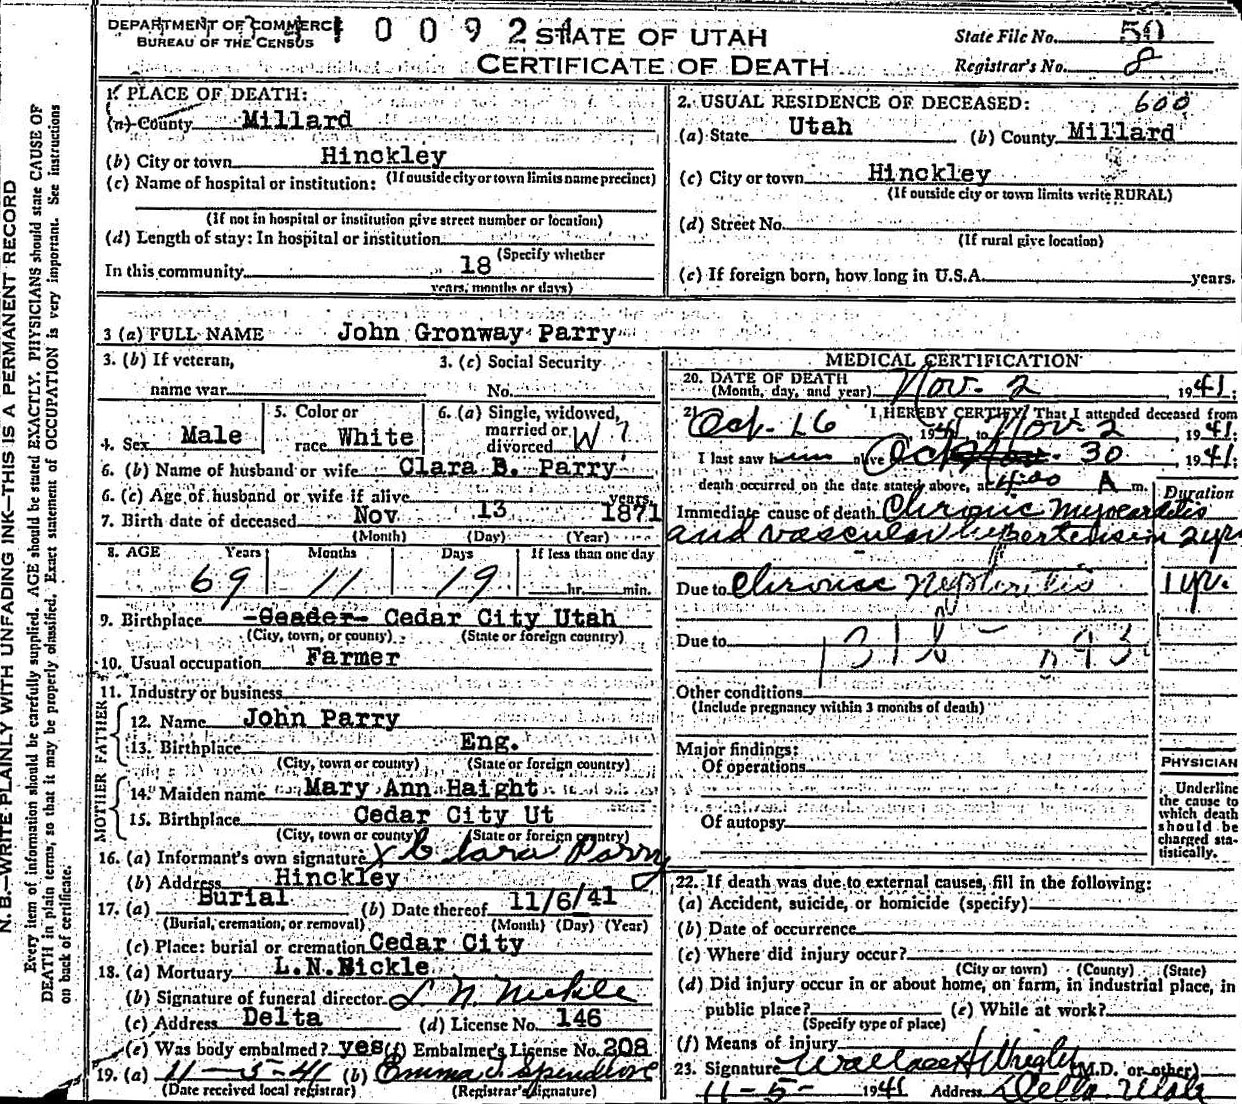 DEPARTMENT OF COMMERCE
BUREAU OF THE CENSUS
0 0 9 2
STATE OF UTAH
CERTIFICATE OF DEATH
State File No. 50
Registrar's No. 8
N. B.—WRITE PLAINLY WITH UNFADING INK—THIS IS A PERMANENT RECORD
Every item of information should be carefully supplied. AGE should be stated EXACTLY. PHYSICIANS should state CAUSE OF
DEATH in plain terms, so that it may be properly classified. Exact statement of OCCUPATION is very important. See instructions
on back of certificate.
1. PLACE OF DEATH:
(a) County Millard
(b) City or town Hinckley
(If outside city or town limits name precinct)
(c) Name of hospital or institution:
(If not in hospital or institution give street number or location)
(d) Length of stay: In hospital or institution
(Specify whether
In this community 18
years, months or days)
2. USUAL RESIDENCE OF DECEASED: 600
(a) State Utah (b) County Millard
(c) City or town Hinckley
(If outside city or town limits write RURAL)
(d) Street No.
(If rural give location)
(e) If foreign born, how long in U.S.A. years.
3 (a) FULL NAME John Gronway Parry
3. (b) If veteran,
name war
3. (c) Social Security
No.
4. Sex Male
5. Color or
race White
6. (a) Single, widowed,
married or
divorced W ?
6. (b) Name of husband or wife Clara B. Parry
6. (c) Age of husband or wife if alive years
7. Birth date of deceased Nov 13 1871
(Month) (Day) (Year)
8. AGE Years Months Days If less than one day
69 11 19 hr. min.
9. Birthplace Ceader Cedar City Utah
(City, town, or county) (State or foreign country)
10. Usual occupation Farmer
11. Industry or business
FATHER
12. Name John Parry
13. Birthplace Eng.
(City, town or county) (State or foreign country)
MOTHER
14. Maiden name Mary Ann Haight
15. Birthplace Cedar City Ut
(City, town or county) (State or foreign country)
16. (a) Informant's own signature x Clara Parry
(b) Address Hinckley
17. (a) Burial (b) Date thereof 11/6/41
(Burial, cremation, or removal) (Month) (Day) (Year)
(c) Place: burial or cremation Cedar City
18. (a) Mortuary L.N.Nickle
(b) Signature of funeral director L. N. Nickle
(c) Address Delta (d) License No. 146
(e) Was body embalmed? yes (f) Embalmer's License No. 208
19. (a) 11-5-41 (b) Emma J. Spendlove
(Date received local registrar) (Registrar's signature)
MEDICAL CERTIFICATION
20. DATE OF DEATH
(Month, day, and year) Nov. 2, 1941.
21. I HEREBY CERTIFY, That I attended deceased from
Oct. 16, 1941 to Nov. 2, 1941.
I last saw him alive Oct 30, 1941.
death occurred on the date stated above, at A m.
Duration
Immediate cause of death Chronic Myocarditis
and vascular hypertension 2 yrs
Due to Chronic Nephritis 1 yr.
Due to 131b 93
Other conditions
(Include pregnancy within 3 months of death)
Major findings:
Of operations
Of autopsy
PHYSICIAN
Underline
the cause to
which death
should be
charged sta-
tistically.
22. If death was due to external causes, fill in the following:
(a) Accident, suicide, or homicide (specify)
(b) Date of occurrence
(c) Where did injury occur?
(City or town) (County) (State)
(d) Did injury occur in or about home, on farm, in industrial place, in
public place? (e) While at work?
(Specify type of place)
(f) Means of injury
23. Signature Wallace H Wright (M.D. or other)
11-5-1941 Address Delta. Utah